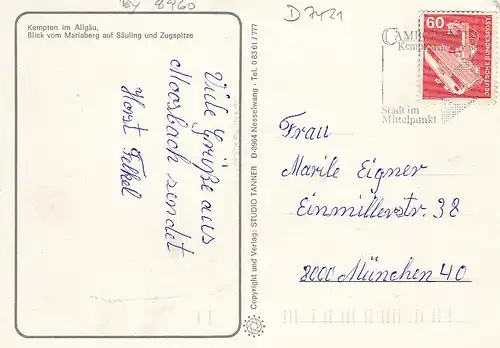 By 8960
D 7421
Kempten im Allgäu,
Blick vom Mariaberg auf Säuling und Zugspitze
Viele Grüße aus
Moosbach sendet
Horst Felkel
Copyright und Verlag: STUDIO TANNER D-8964 Nesselwang - Tel. 0 83 61 / 777
60
DEUTSCHE BUNDESPOST
Stadt im
Mittelpunkt
Frau
Marile Eigner
Einmillerstr. 38
8000 München 40